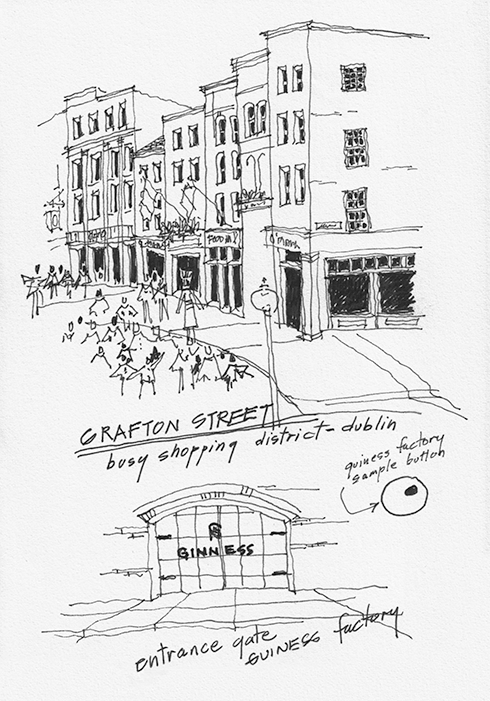 GRAFTON STREET
busy shopping district - dublin
guiness factory
sample button
GINNESS
entrance gate GUINESS factory